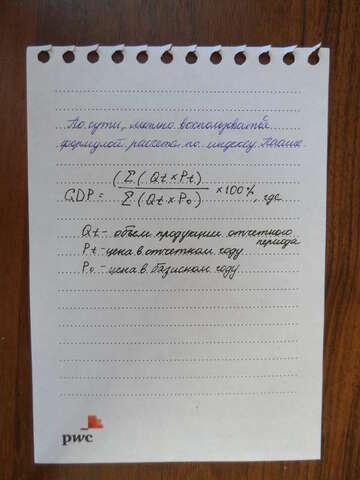 По сути, можно воспользоваться
формулой рассета по индексу Пааше.
GDP = (Σ(Qt × Pt) / Σ(Qt × P₀) × 100%, где
Qt - объем продукции отчетного
периода
Pt - цена в отчетном году
P₀ - цена в базисном году.
pwc